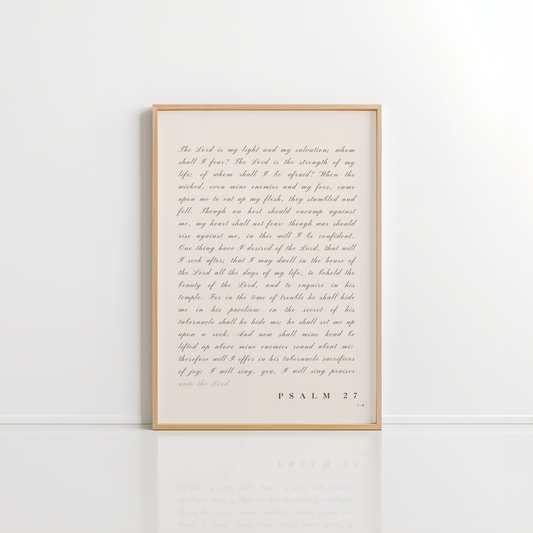 The Lord is my light and my salvation; whom
shall I fear? The Lord is the strength of my
life; of whom shall I be afraid? When the
wicked, even mine enemies and my foes, came
upon me to eat up my flesh, they stumbled and
fell. Though an host should encamp against
me, my heart shall not fear: though war should
rise against me, in this will I be confident.
One thing have I desired of the Lord, that will
I seek after; that I may dwell in the house of
the Lord all the days of my life, to behold the
beauty of the Lord, and to enquire in his
temple. For in the time of trouble he shall hide
me in his pavilion: in the secret of his
tabernacle shall he hide me; he shall set me up
upon a rock. And now shall mine head be
lifted up above mine enemies round about me:
therefore will I offer in his tabernacle sacrifices
of joy; I will sing, yea, I will sing praises
unto the Lord.
PSALM 27